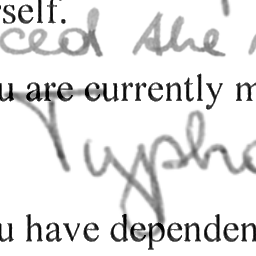 rself.
ced she
u are currently m
Typho
u have dependen